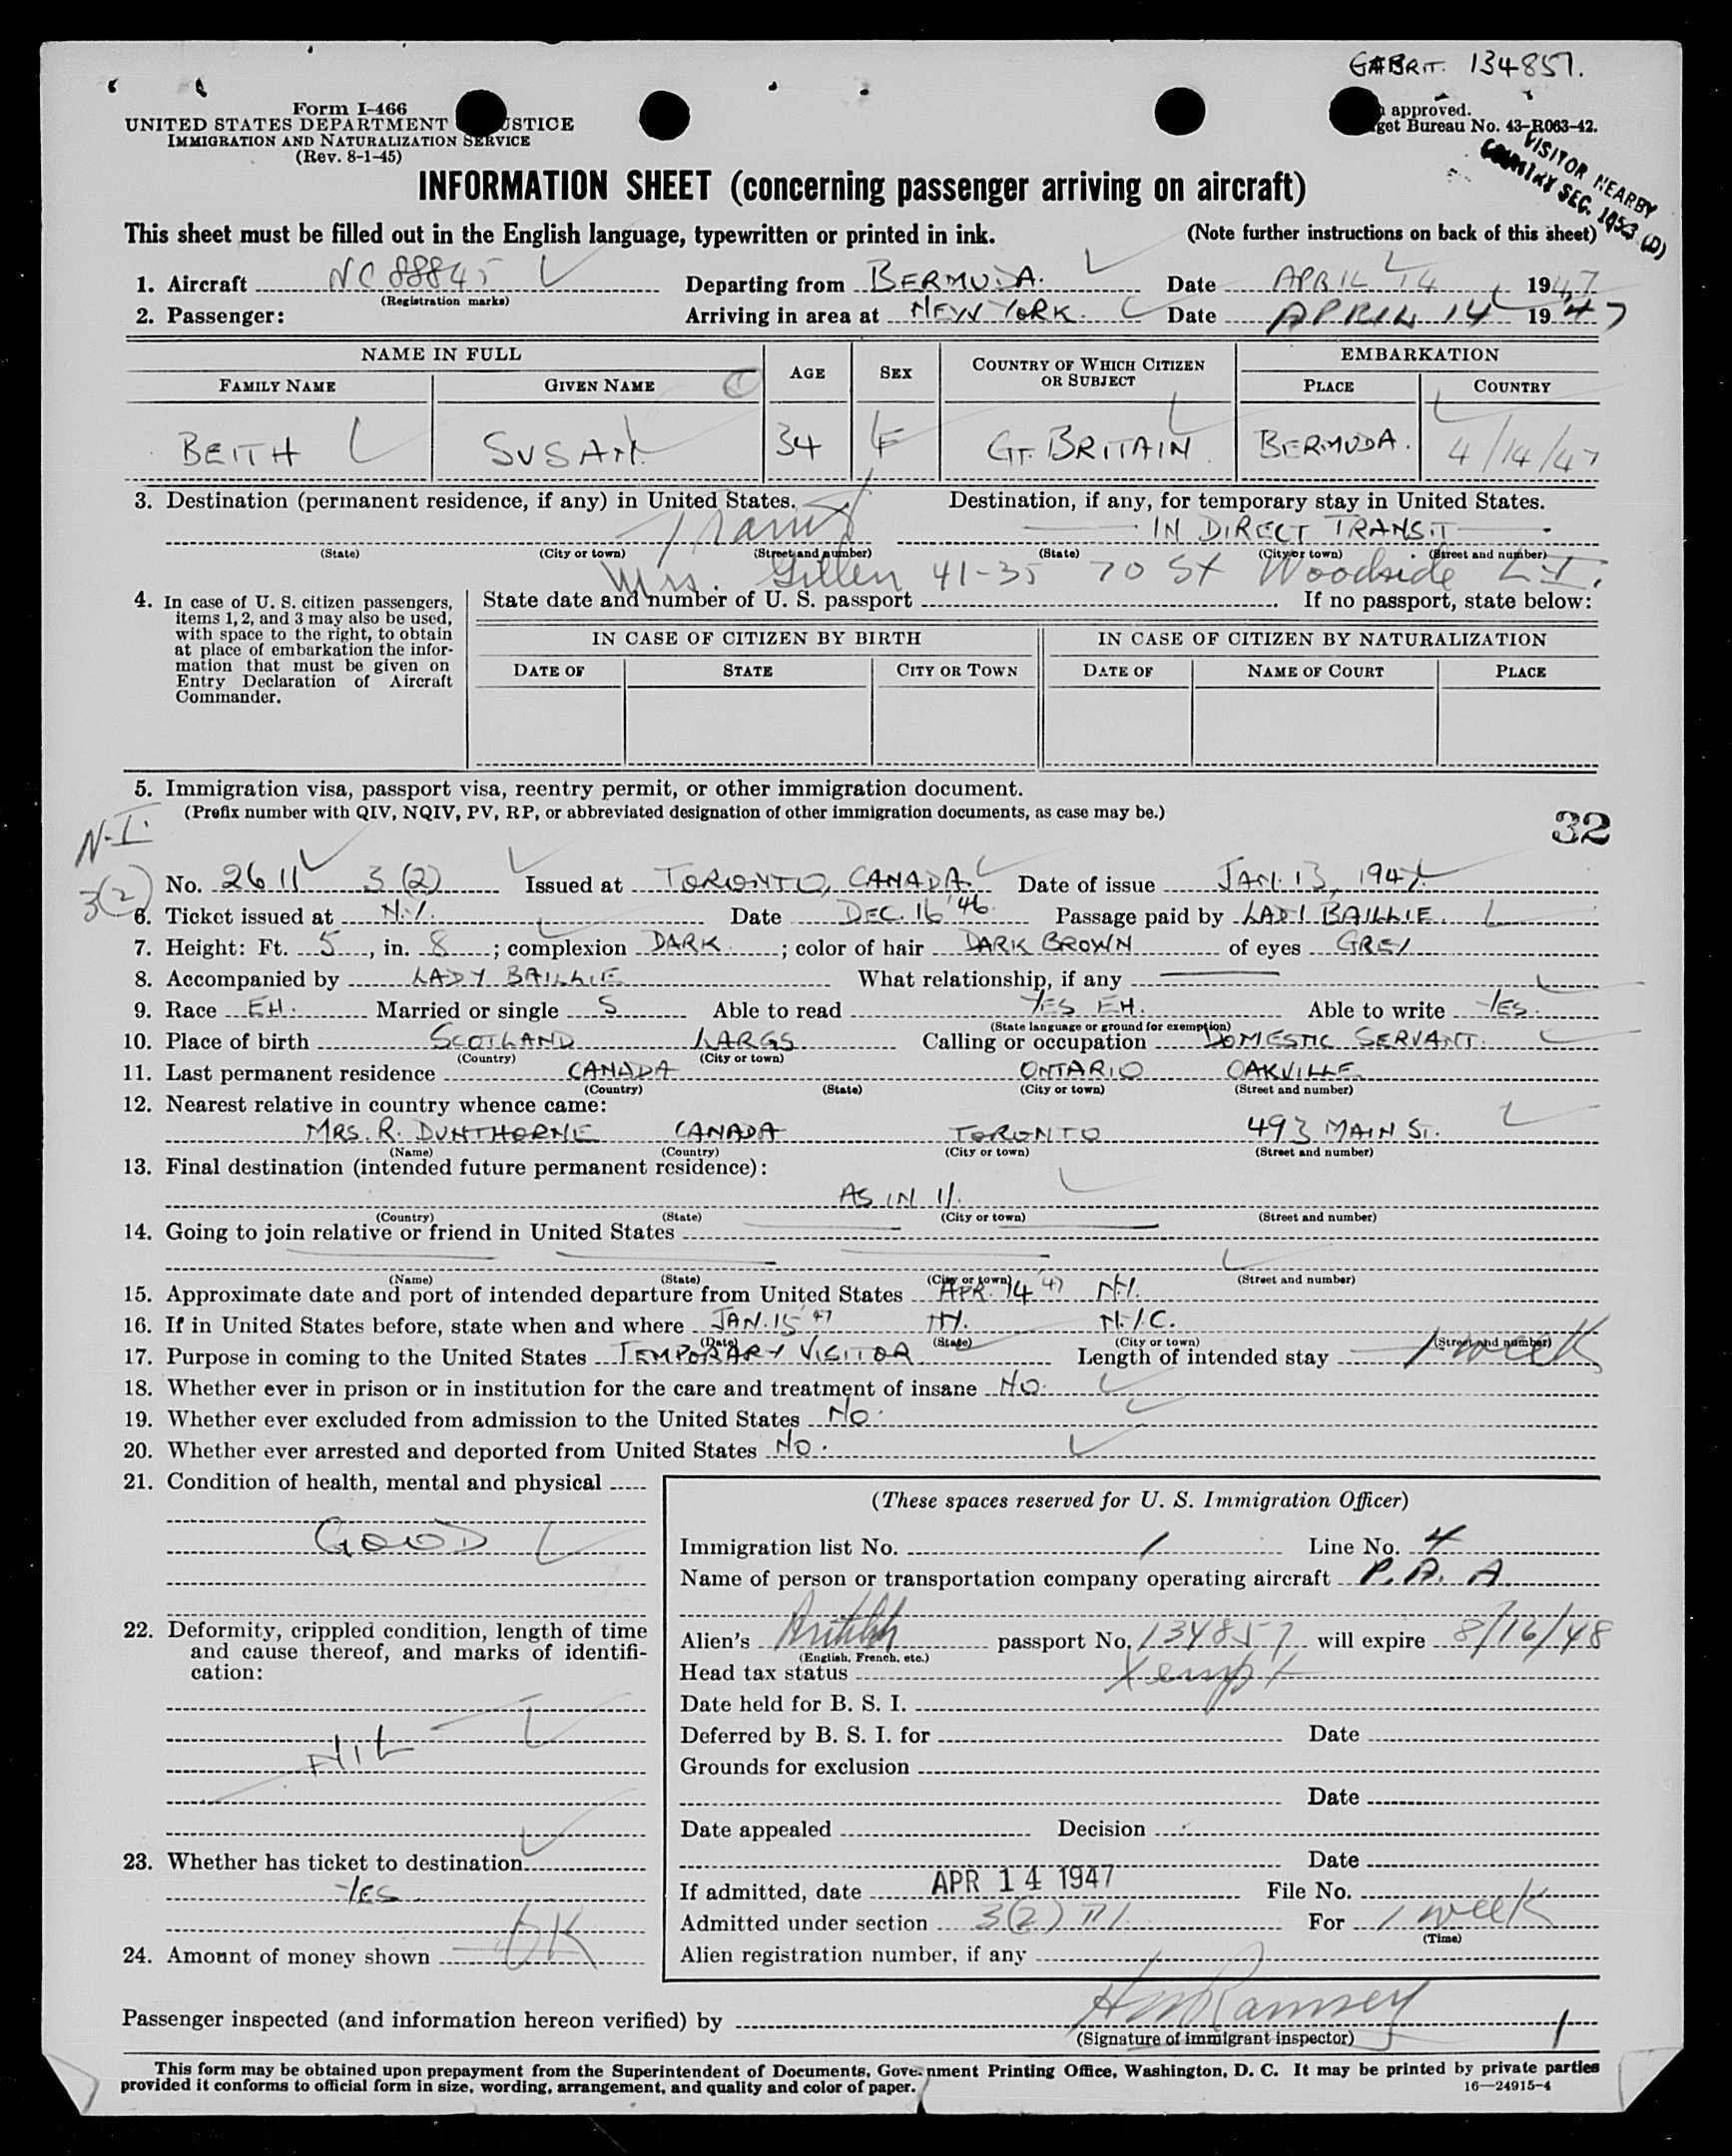 GT BRIT. 134857.
Form I-466
UNITED STATES DEPARTMENT JUSTICE
IMMIGRATION AND NATURALIZATION SERVICE
(Rev. 8-1-45)
approved.
get Bureau No. 43-R063-42.
VISITOR NEARBY
COUNTRY SEC. (D)
INFORMATION SHEET (concerning passenger arriving on aircraft)
This sheet must be filled out in the English language, typewritten or printed in ink. (Note further instructions on back of this sheet)
1. Aircraft NC 88845 Departing from BERMUDA. Date APRIL 14 1947
(Registration marks)
2. Passenger: Arriving in area at NEW YORK. Date APRIL 14 1947
NAME IN FULL AGE SEX COUNTRY OF WHICH CITIZEN OR SUBJECT EMBARKATION
FAMILY NAME GIVEN NAME PLACE COUNTRY
BEITH SUSAN. 34 F GT. BRITAIN. BERMUDA. 4/14/47
3. Destination (permanent residence, if any) in United States. Destination, if any, for temporary stay in United States.
Transit IN DIRECT TRANSIT
(State) (City or town) (Street and number) (State) (City or town) (Street and number)
Mrs. Gillen 41-35 70 St Woodside L.I.
4. In case of U. S. citizen passengers, items 1, 2, and 3 may also be used, with space to the right, to obtain at place of embarkation the information that must be given on Entry Declaration of Aircraft Commander.
State date and number of U. S. passport If no passport, state below:
IN CASE OF CITIZEN BY BIRTH IN CASE OF CITIZEN BY NATURALIZATION
DATE OF STATE CITY OR TOWN DATE OF NAME OF COURT PLACE
5. Immigration visa, passport visa, reentry permit, or other immigration document.
(Prefix number with QIV, NQIV, PV, RP, or abbreviated designation of other immigration documents, as case may be.)
N-I.
32
3(2)
No. 2611 3(2) Issued at TORONTO, CANADA. Date of issue JAN. 13, 1947.
6. Ticket issued at N.Y. Date DEC. 16 '46 Passage paid by LADY BAILLIE.
7. Height: Ft. 5, in. 8; complexion DARK; color of hair DARK BROWN of eyes GREY
8. Accompanied by LADY BAILLIE What relationship, if any
9. Race EH. Married or single S Able to read YES EH. Able to write YES.
(State language or ground for exemption)
10. Place of birth SCOTLAND LARGS Calling or occupation DOMESTIC SERVANT.
(Country) (City or town)
11. Last permanent residence CANADA ONTARIO OAKVILLE
(Country) (State) (City or town) (Street and number)
12. Nearest relative in country whence came:
MRS. R. DUNTHORNE CANADA TORONTO 493 MAIN ST.
(Name) (Country) (City or town) (Street and number)
13. Final destination (intended future permanent residence):
AS IN 11.
(Country) (State) (City or town) (Street and number)
14. Going to join relative or friend in United States
(Name) (State) (City or town) (Street and number)
15. Approximate date and port of intended departure from United States APR. 14 '47 N.Y.
16. If in United States before, state when and where JAN. 15 '47 NY. N.Y.C.
(Date) (State) (City or town) (Street and number)
17. Purpose in coming to the United States TEMPORARY VISITOR Length of intended stay 1 week
18. Whether ever in prison or in institution for the care and treatment of insane NO.
19. Whether ever excluded from admission to the United States NO.
20. Whether ever arrested and deported from United States NO.
21. Condition of health, mental and physical
GOOD
22. Deformity, crippled condition, length of time and cause thereof, and marks of identification:
NIL
23. Whether has ticket to destination
YES
24. Amount of money shown OK
(These spaces reserved for U. S. Immigration Officer)
Immigration list No. 1 Line No. 4
Name of person or transportation company operating aircraft P. A. A.
Alien's British passport No. 134857 will expire 8/16/48
(English, French, etc.)
Head tax status Xempt
Date held for B. S. I.
Deferred by B. S. I. for Date
Grounds for exclusion
Date
Date appealed Decision
Date
If admitted, date APR 14 1947 File No.
Admitted under section 3(2) For 1 week
(Time)
Alien registration number, if any
Passenger inspected (and information hereon verified) by Ramsey 1
(Signature of immigrant inspector)
This form may be obtained upon prepayment from the Superintendent of Documents, Government Printing Office, Washington, D. C. It may be printed by private parties
provided it conforms to official form in size, wording, arrangement, and quality and color of paper. 16—24915-4